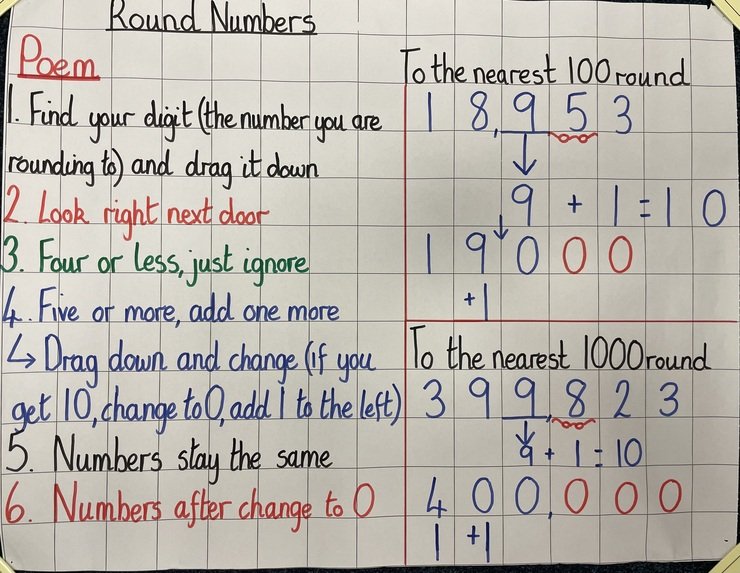 Round Numbers
Poem
1. Find your digit (the number you are
rounding to) and drag it down
2. Look right next door
3. Four or less, just ignore
4. Five or more, add one more
↳ Drag down and change (if you
get 10, change to 0, add 1 to the left)
5. Numbers stay the same
6. Numbers after change to 0
To the nearest 100 round
18,953
↓
9 + 1 = 10
↓
19,000
+1
To the nearest 1000 round
399,823
↓
9 + 1 = 10
400,000
1 +1